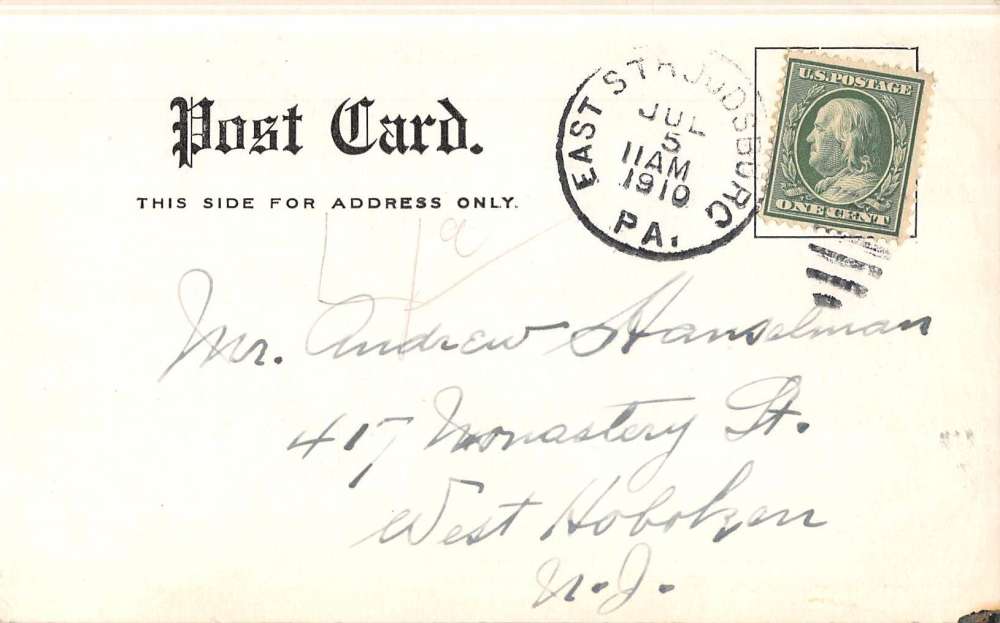 Post Card.
THIS SIDE FOR ADDRESS ONLY.
EAST STROUDSBURG
JUL
5
11 AM
1910
PA.
U.S. POSTAGE
ONE CENT
Mr. Andrew Hanselman
417 Monastery St.
West Hoboken
N.J.